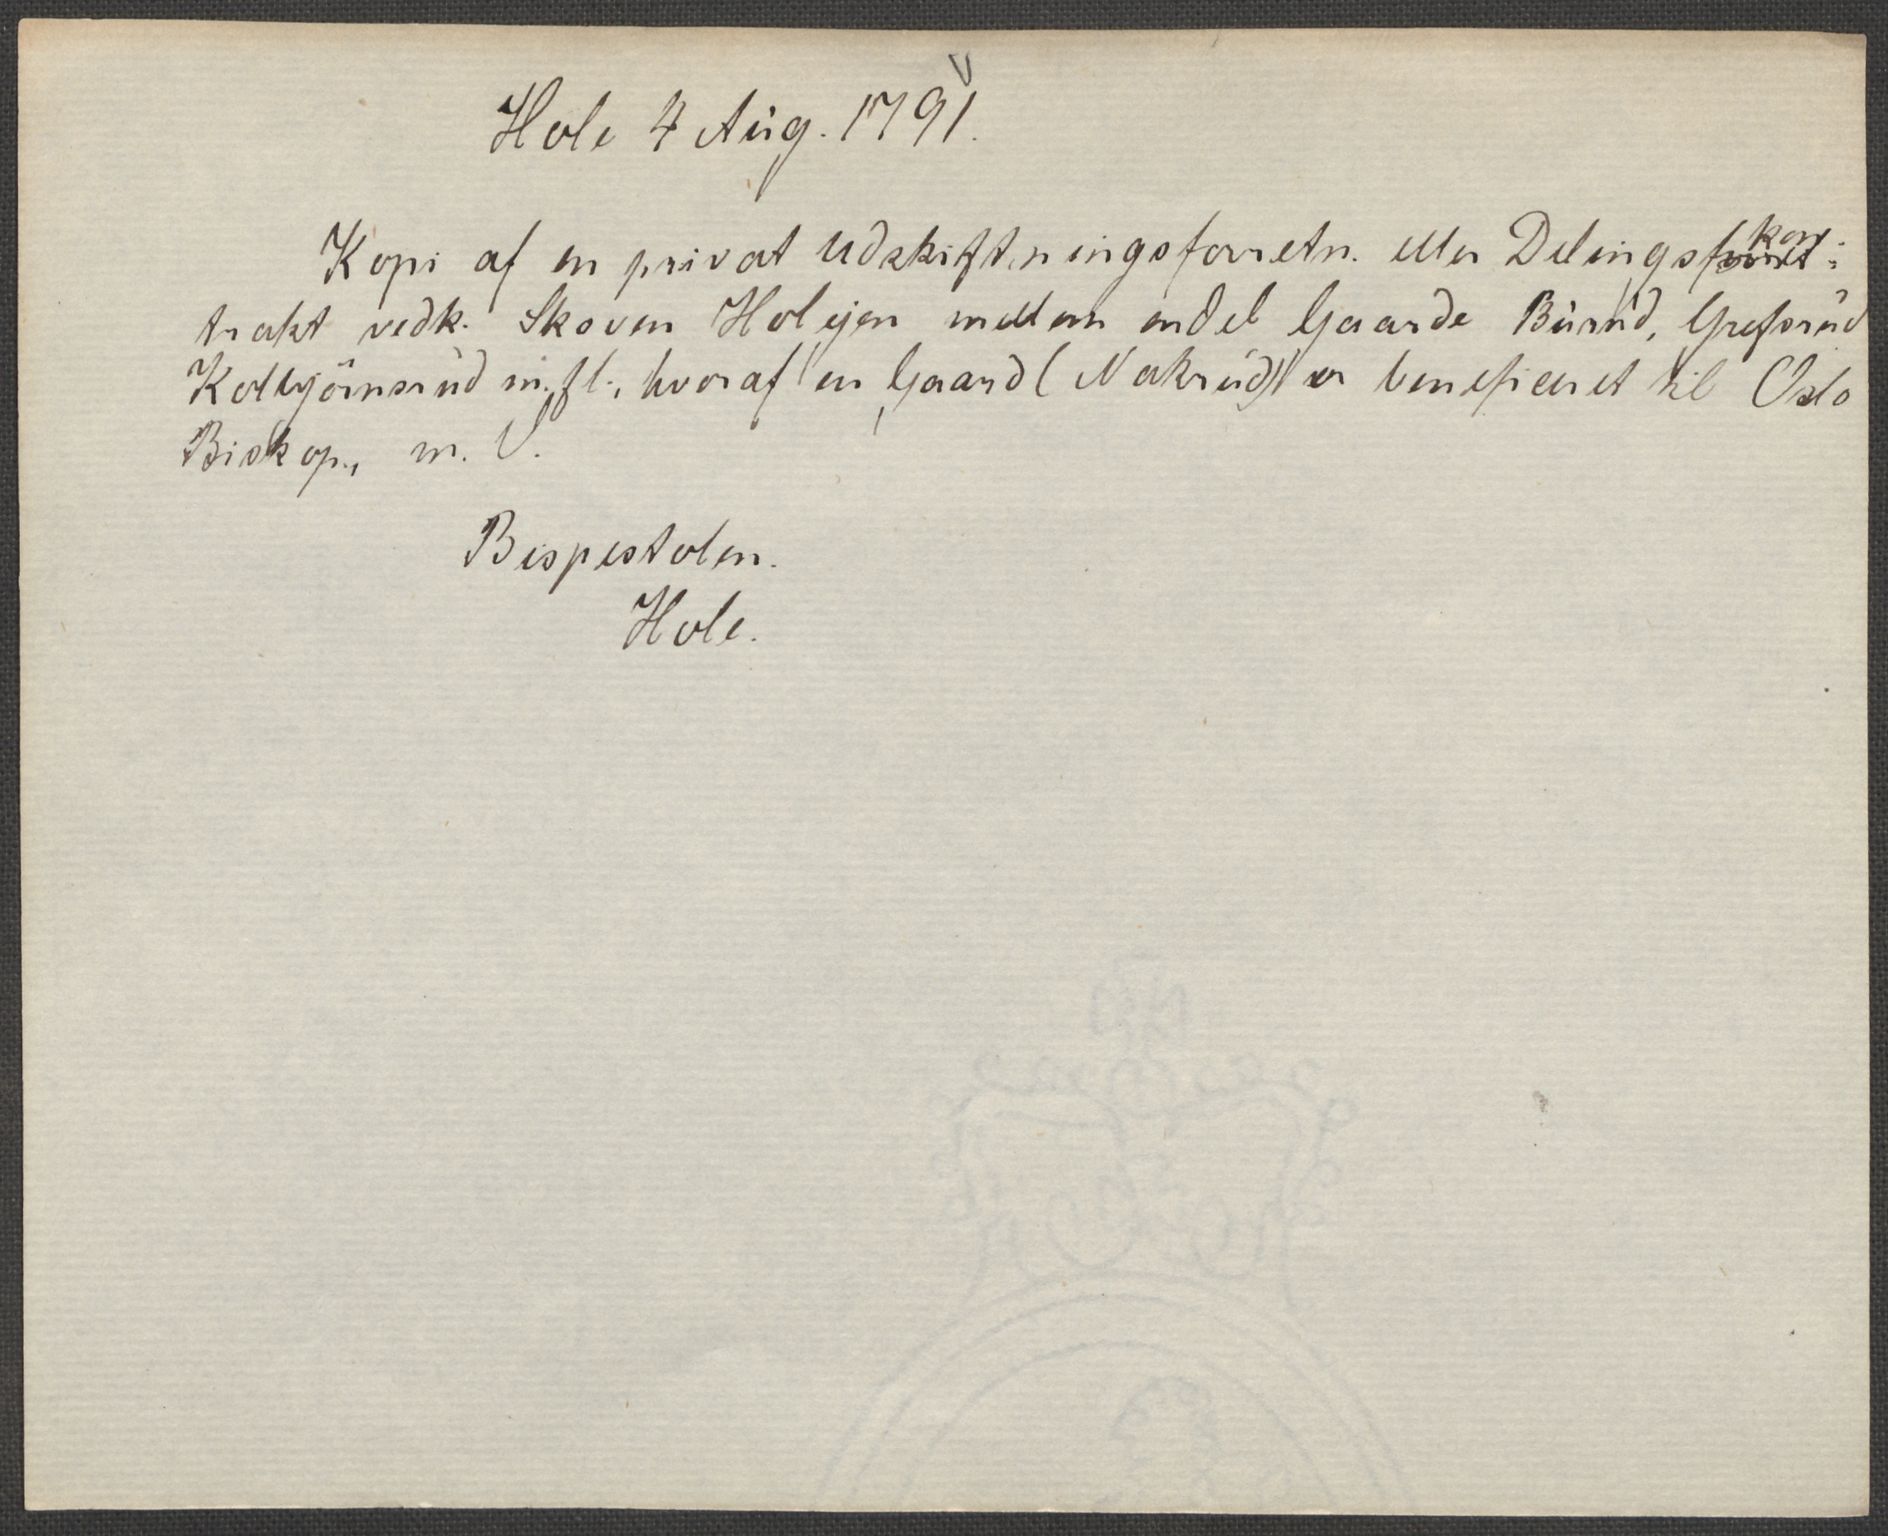 Hole 4 Aug. 1791.
Kopi af en privat Udskiftningsforretn. eller Delingskon-
trakt vedk. Skoven Holejen mellem endel Gaarde Burud, Grefsrud
Kolbjörnsrud m. fl., hvoraf en Gaard (Nakrud) er beneficeret til Oslo
Biskop., m. V.
Bispestolen.
Hole.